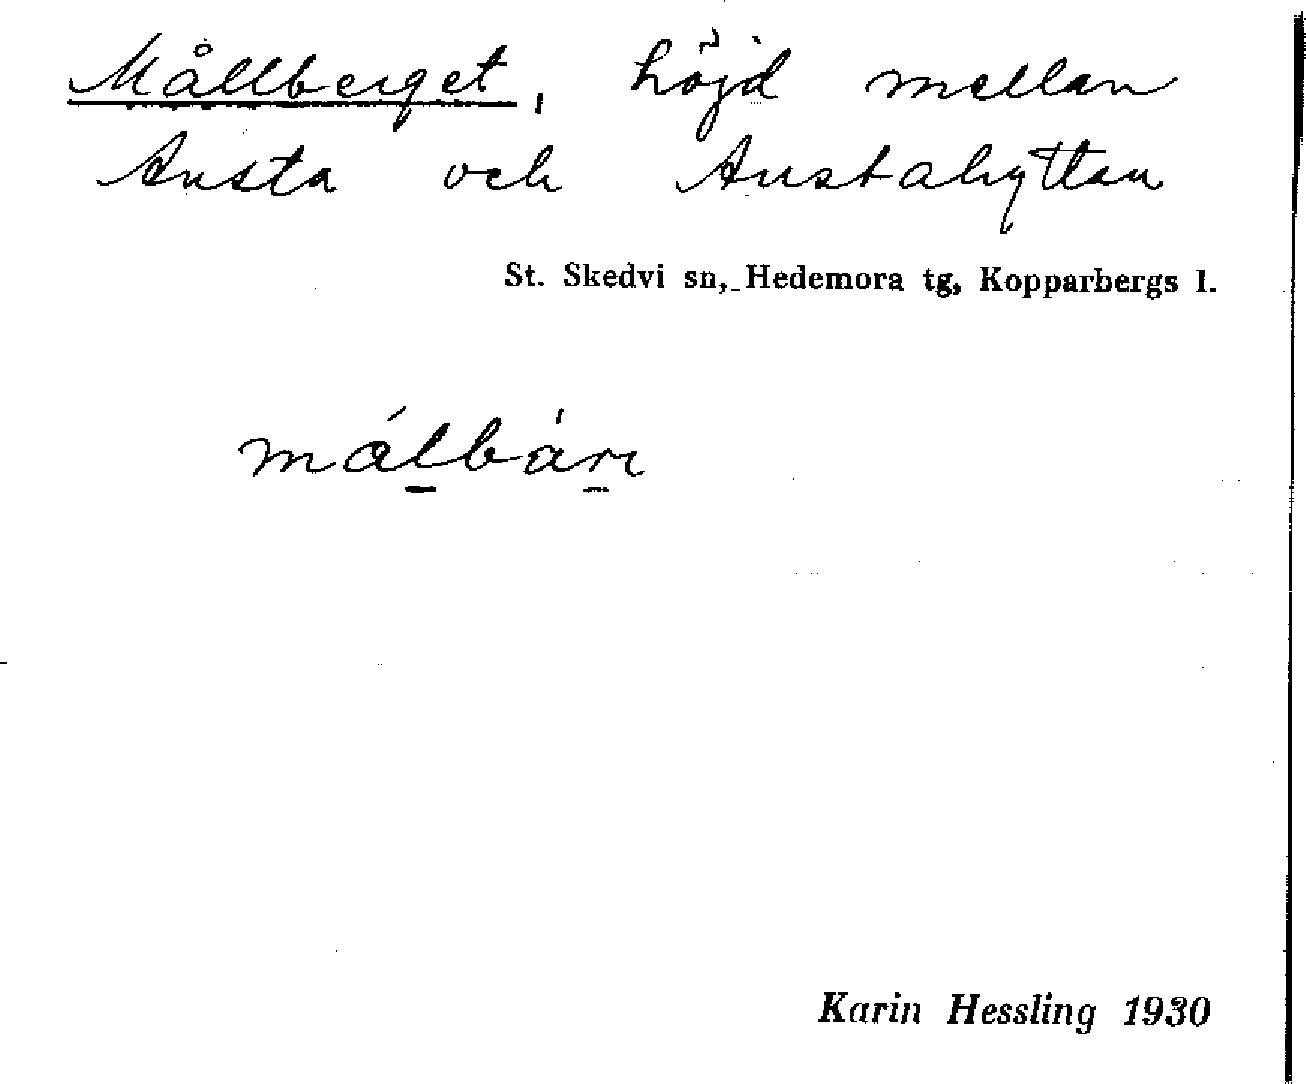 Mållberget, höjd mellan
Ansta och Anstahyttan
St. Skedvi sn, Hedemora tg, Kopparbergs l.
málbárı
Karin Hessling 1930